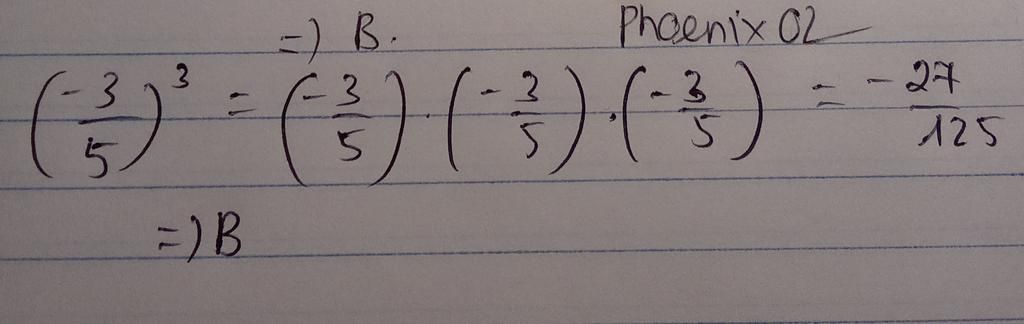 =) B. Phoenix 02
(-3/5)³ = (-3/5) · (-3/5) · (-3/5) = -27/125
=) B